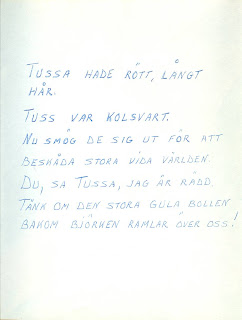 TUSSA HADE RÖTT, LÅNGT
HÅR.
TUSS VAR KOLSVART.
NU SMÖG DE SIG UT FÖR ATT
BESKÅDA STORA VIDA VÄRLDEN.
DU, SA TUSSA, JAG ÄR RÄDD.
TÄNK OM DEN STORA GULA BOLLEN
BAKOM BJÖRKEN RAMLAR ÖVER OSS!